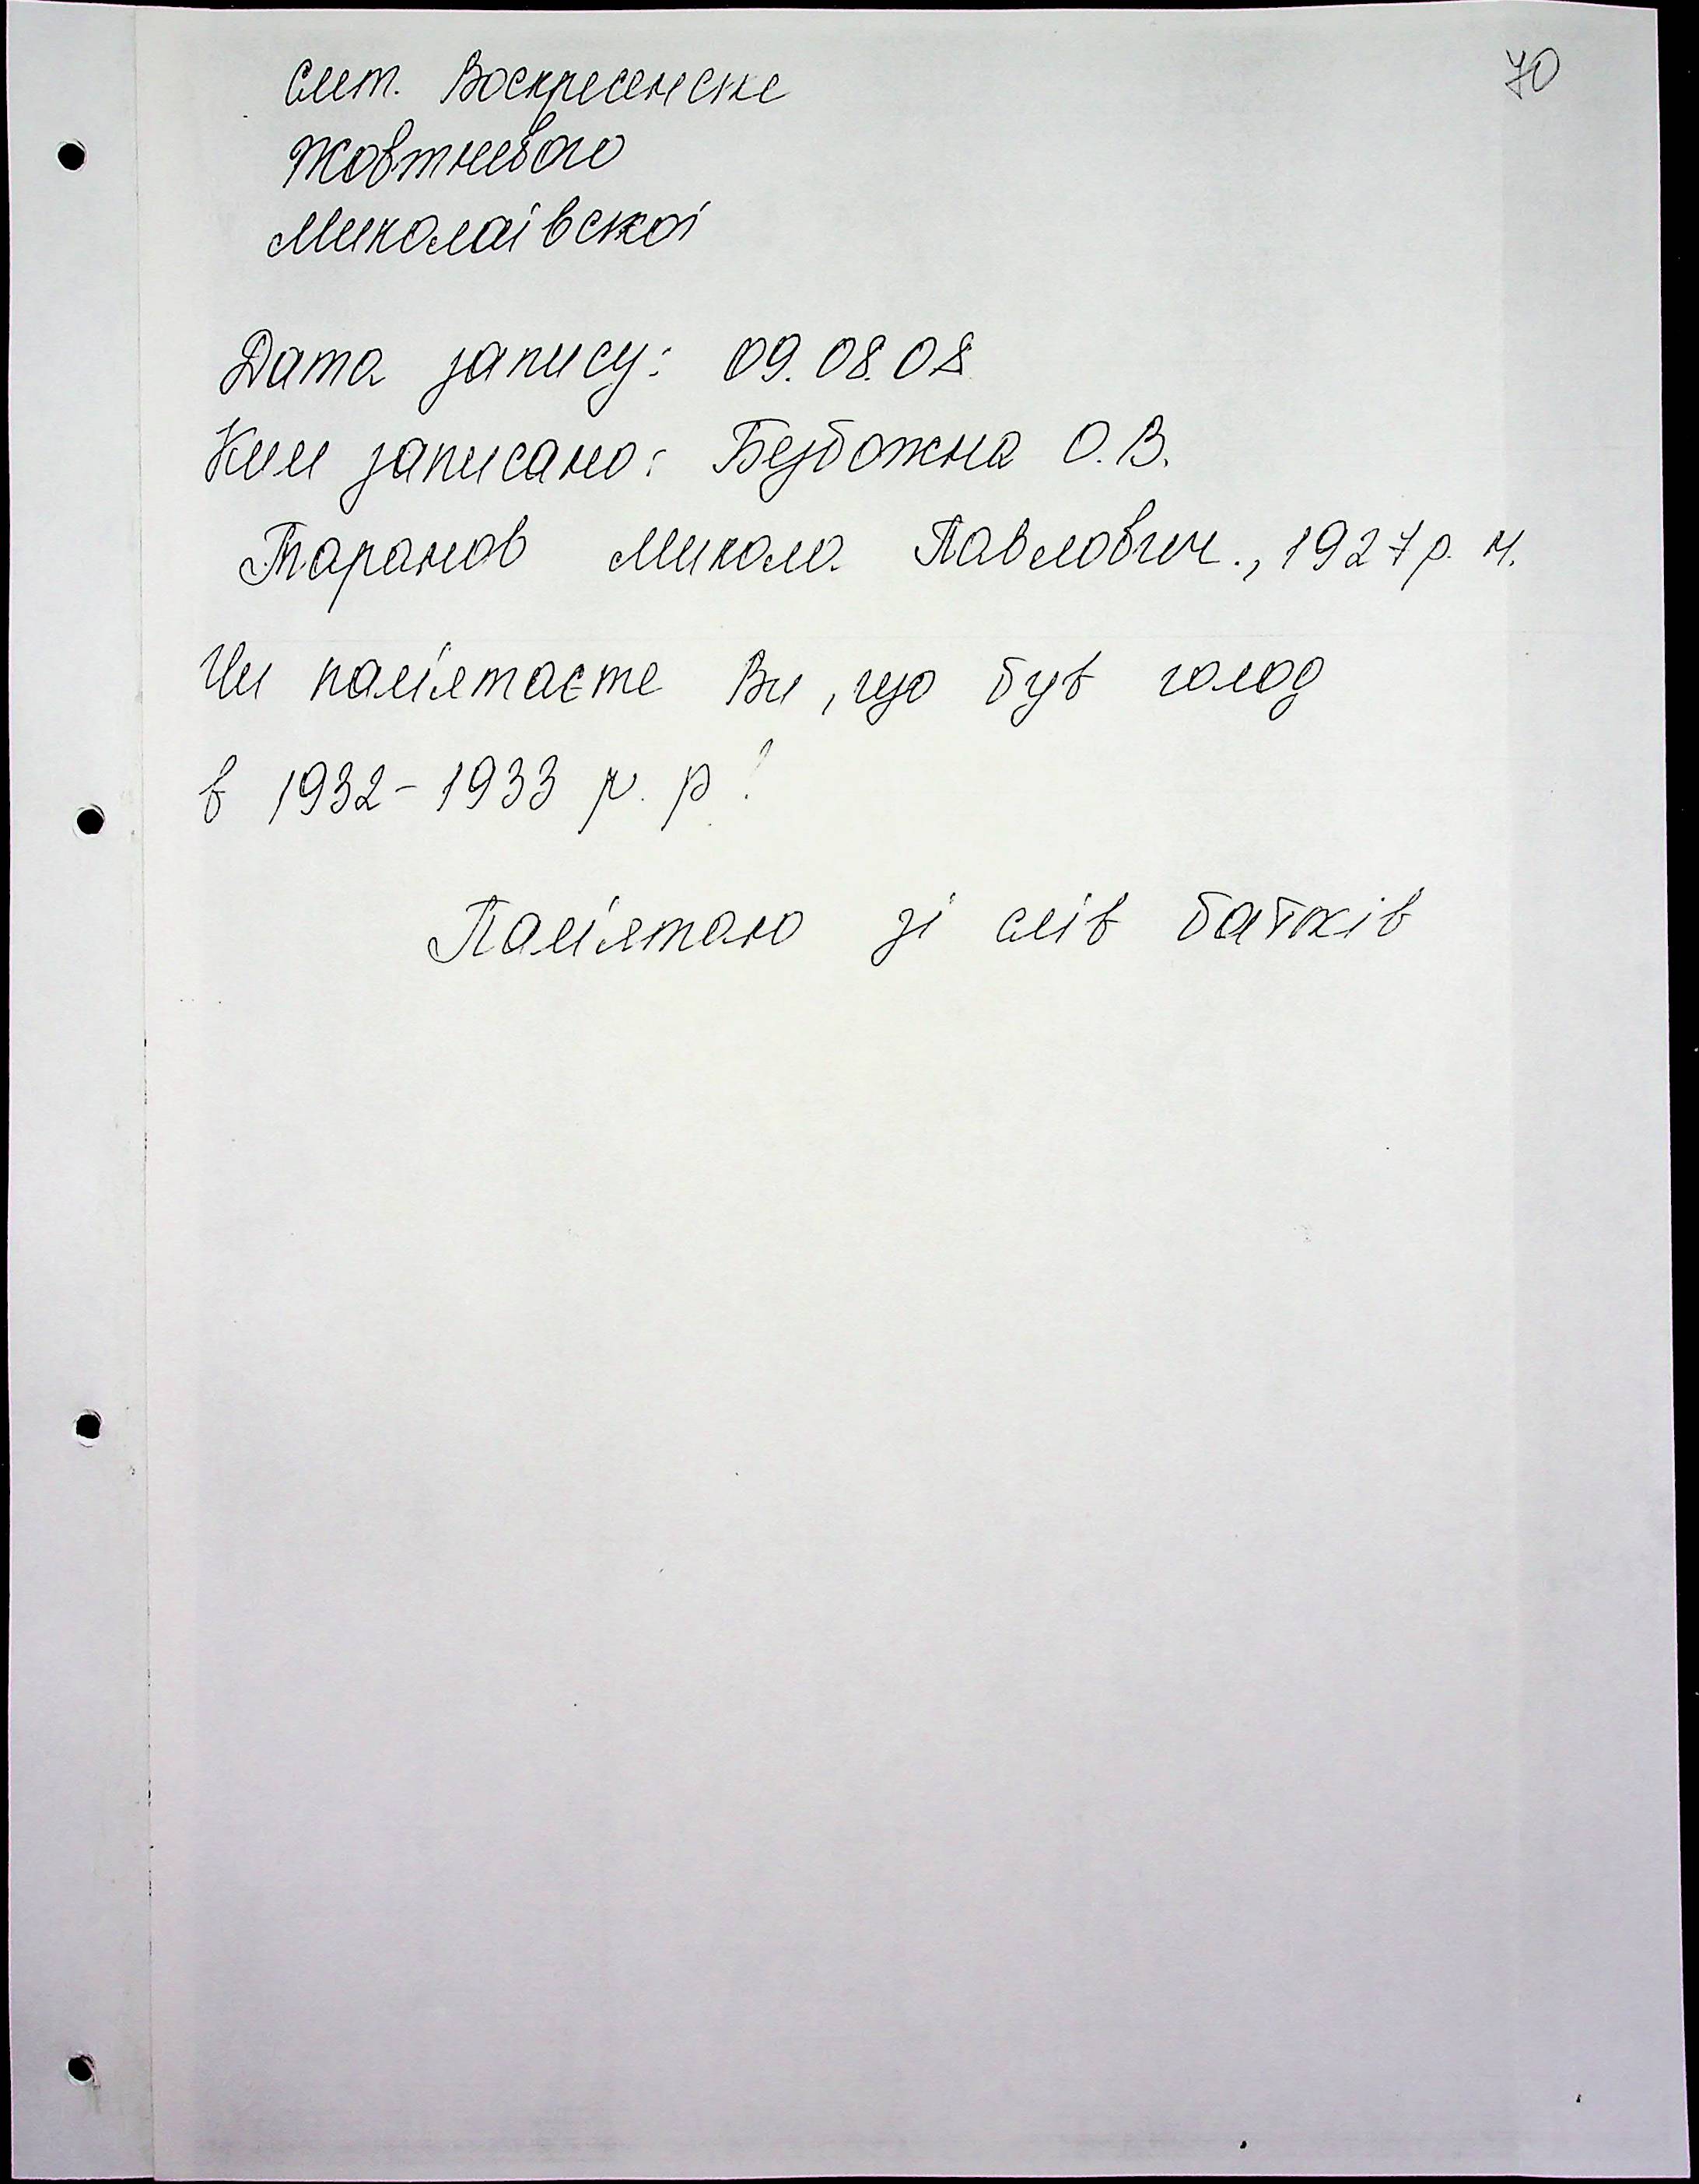 70
смт. Воскресенське
Жовтневого
Миколаївської
Дата запису: 09.08.08
Ким записано: Безбожна О.В.
Таранов Микола Павлович., 1927 р. н.
Чи пам'ятаєте Ви, що був голод
в 1932-1933 р. р?
Пам'ятаю зі слів батків